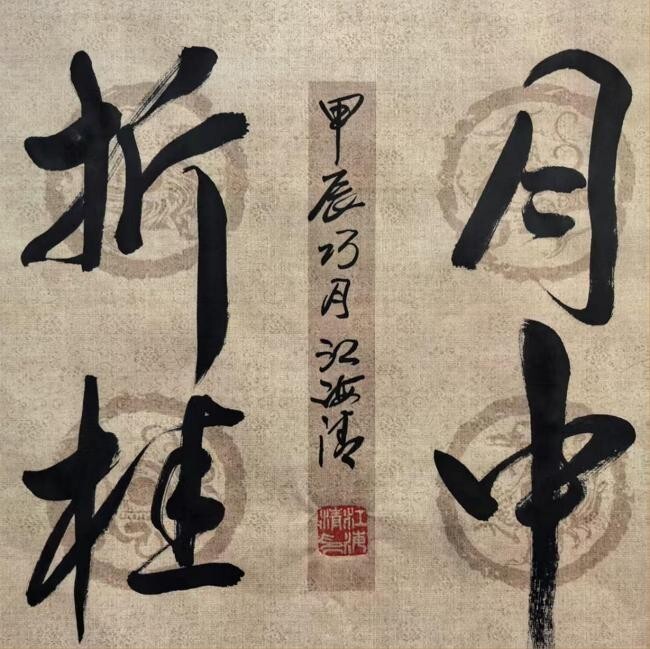 月中
折桂
甲辰巧月江海清
江海
清印